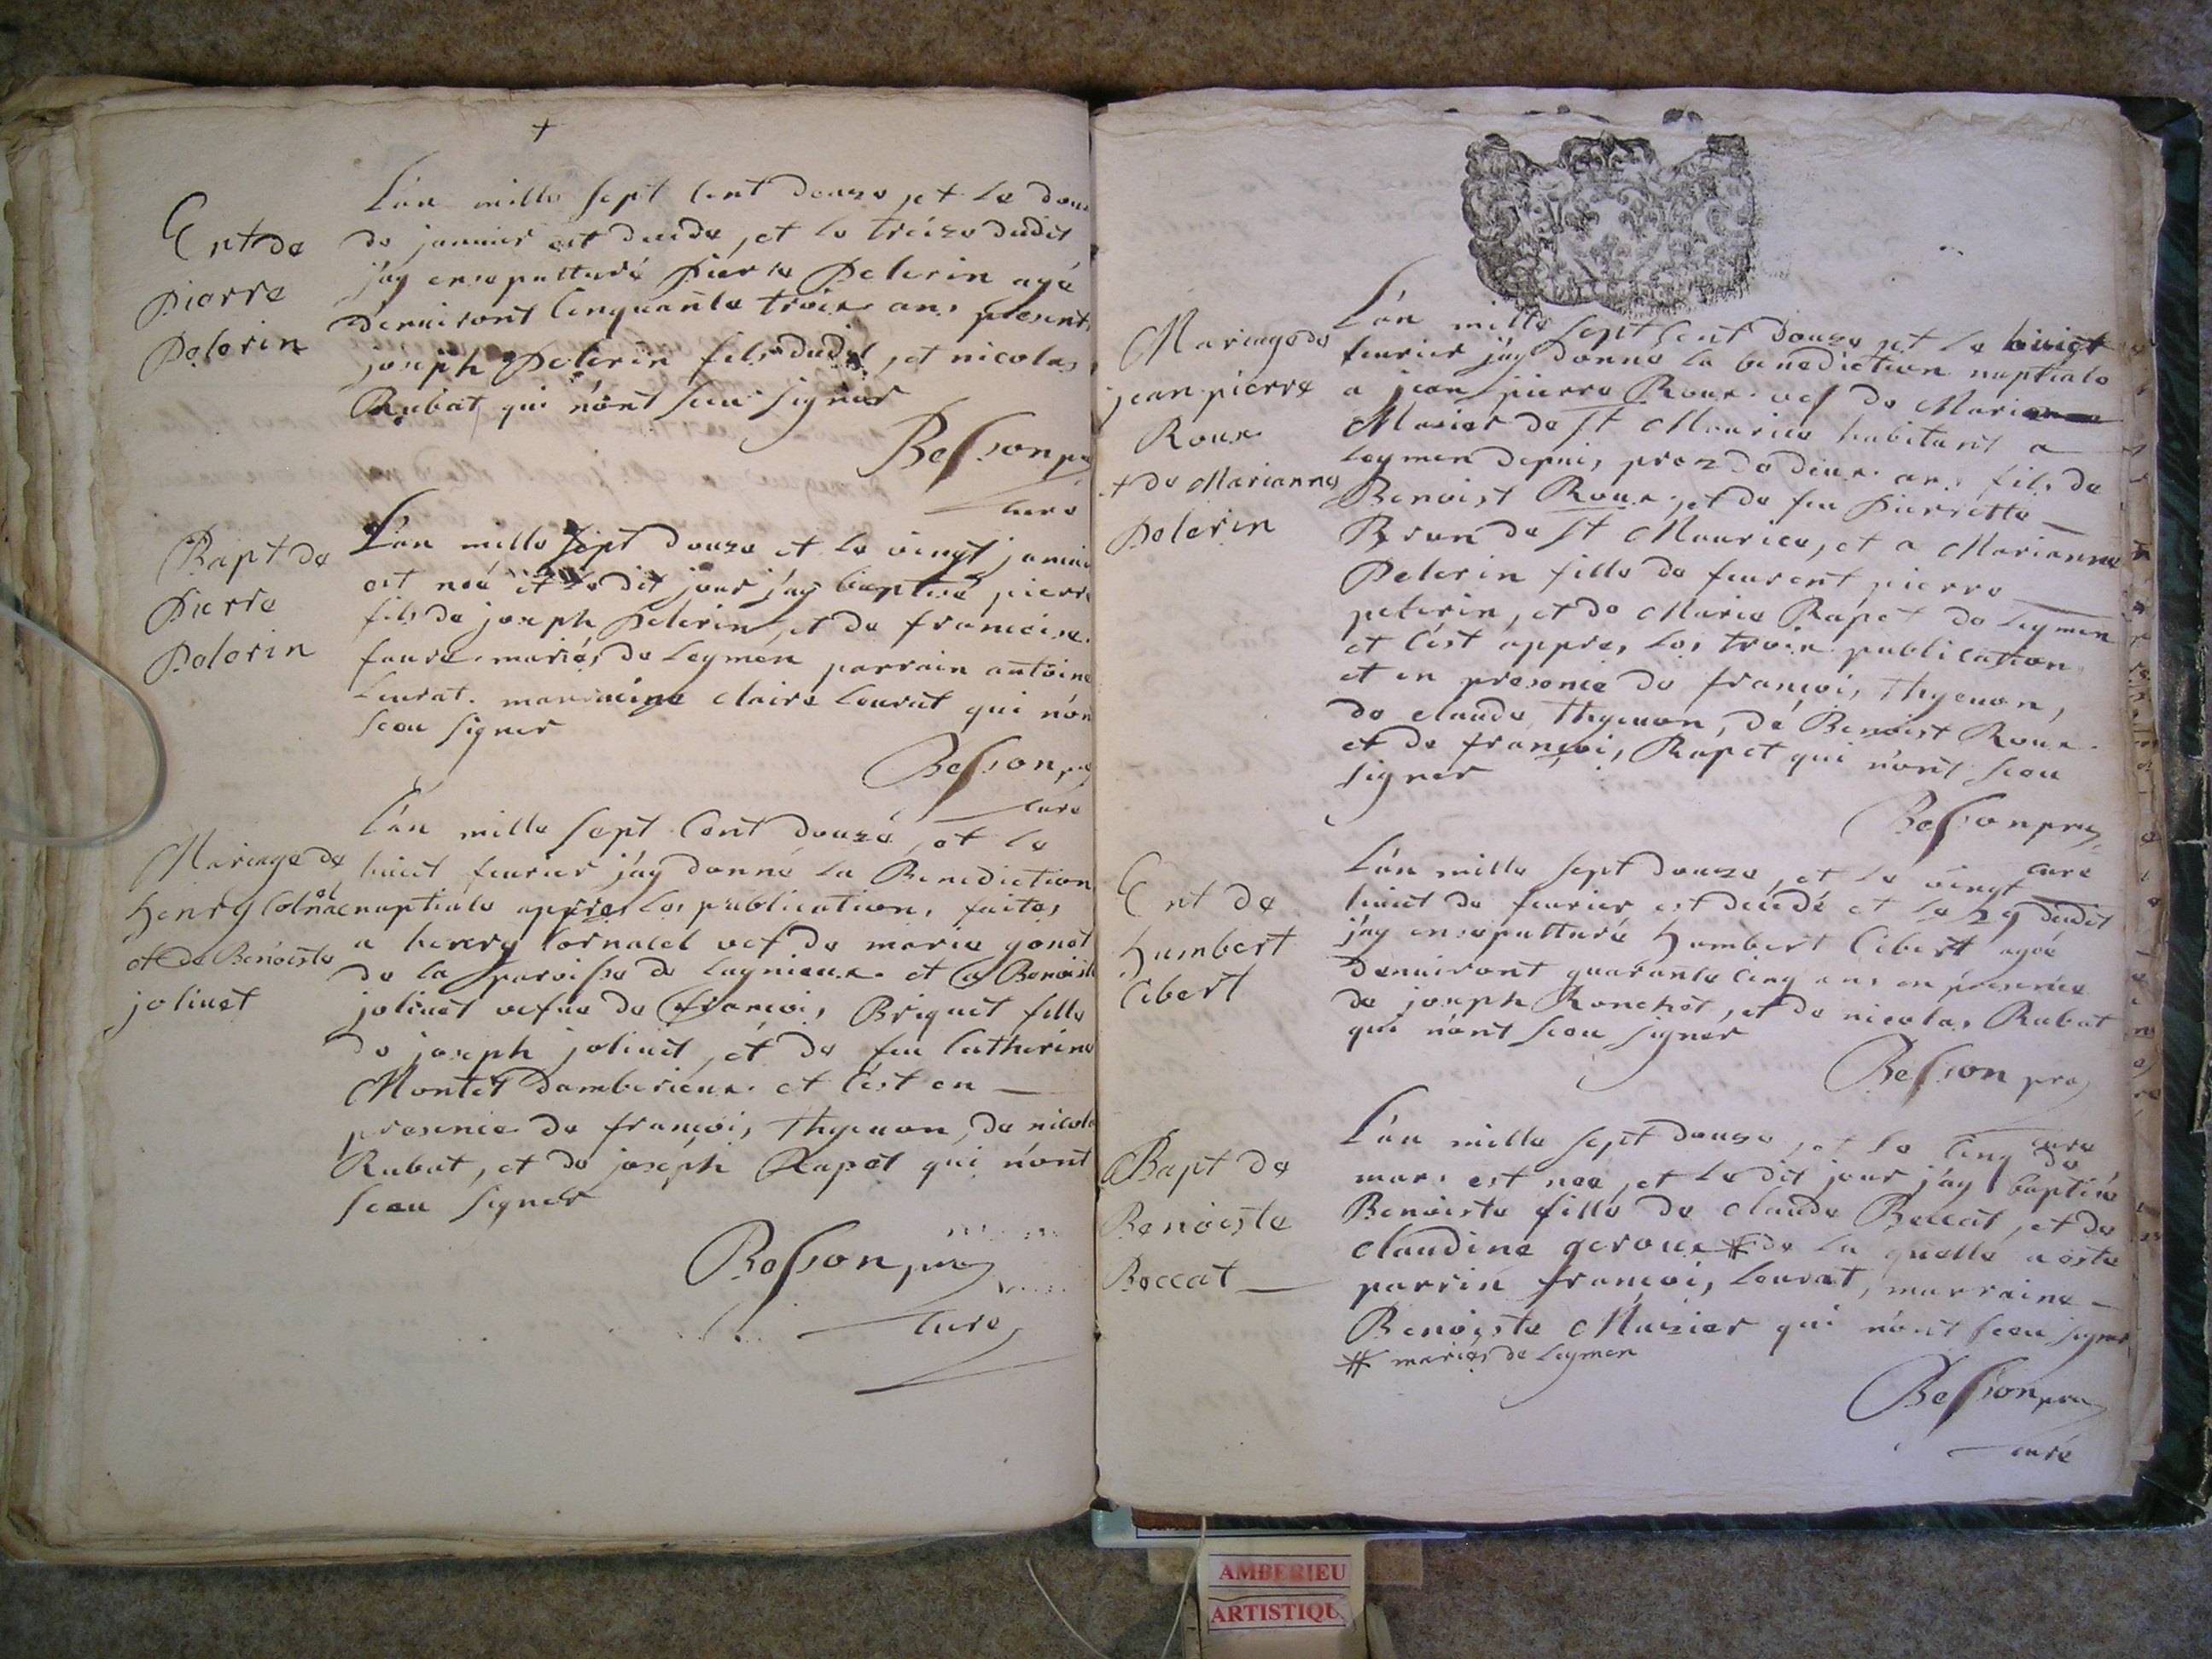 +
Ent de
pierre
pelerin
L'an mille sept cent douze et le douz
de januier est decede, et le treize dudit
j'ay ensepulturé pierre pelerin agé
d'enuiront cinquante trois ans presents
joseph pelerin fils dudit, et nicolas
Rubat qui n'ont sceu signer
Besson pre
curé
Bapt de
pierre
pelerin
L'an mille sept douze et le vingt januie
est neé et le dit jour j'ay baptisé pierre
fils de joseph pelerin et de francoise
faure mariés de leymen parrain antoine
Leurat. marraine claire Leurat qui n'on
sceu signer
Besson pre
curé
Mariage de
henry
et de Benoiste
joliuet
L'an mille sept cent douze, et le
huict feurier j'ay donné la Benediction
nuptiale appres les publications faites
a henry Cornalel vef de marie gonet
de la paroisse de lagnieux et a Benoiste
joliuet vefue de francois Briquet fille
de joseph joliuet, et de feu Catherine
Montet d'amberieux et c'est en
presence de francois Thyeuon, de nicola
Rubat, et de joseph Rapet qui n'ont
sceu signer
Besson pre
curé
Mariage de
jean pierre
Roux
et de Marianne
pelerin
L'an mille sept cent douze et le huict
feurier j'ay donné la benediction nuptiale
a jean pierre Roux vef de Marianne
Masier de st Maurice habitant a
Leymen depuis prez de deux ans fils de
Benoist Roux, et de feu pierrette
Brun de st Maurice, et a Marianne
pelerin fille de feu pierre
pelerin, et de Marie Rapet de leymen
et c'est appres les trois publications
et en presence de francois Thyeuon,
de claude Thyeuon, de Benoist Roux
et de francois Rapet qui n'ont sceu
signer
Besson pre
curé
Ent de
humbert
Cibert
L'an mille sept douze, et le vingt
huict de feurier est decedé et le 29 dudit
j'ay ensepulturé humbert Cibert agée
d'enuiront quarante cinq ans en presence
de joseph Ronchet, et de nicolas Rubat
qui n'ont sceu signer
Besson pre
curé
Bapt de
Benoiste
Beccat
L'an mille sept douze, et le cinq de
mars est neé, et le dit jour j'ay baptisé
Benoiste fille de claude Beccat, et de
claudine geroux # de la quelle a esté
parrin francois Leurat, marraine
Benoiste Masier qui n'ont sceu signer
# mariés de leymen
Besson pre
curé
AMBERIEU
ARTISTIQU